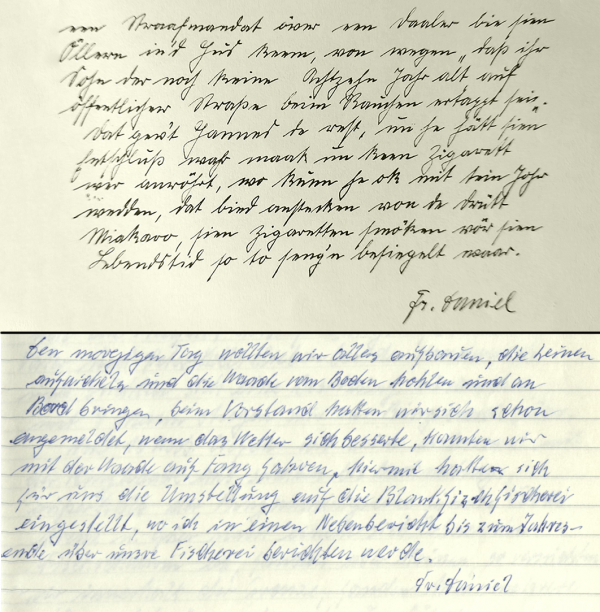 een Straafmandat över een Daaler bie sien
Öllern in'd Hus keem, von wegen „daß ihr
Sohn der noch keine Achtzehn Jahr alt auf
öffentlicher Straße beim Rauchen ertappt sei".
Dat gew't Hannes de rest, un he hätt sien
Entschluß wohr maak un keen Zigarett
wer anröhrt, wo kunn he ok mit tein Johr
wedden, dat bied anstecken von de drütt
Miakaro, sien Zigaretten smöken vör sien
Lebendstid so to seng'n besiegelt waar.
Fr. Daniel
den morgigen Tag wollten wir alles aufbauen, die Leinen
aufwickeln und die Waade vom Boden holen und an
Bord bringen, beim Vorstand hatten wir sich schon
angemeldet, wenn das Wetter sich besserte, konnten wir
mit der Waade auf Fang fahren, hiermit hatte sich
für uns die Umstellung auf die Blankfischfischerei
eingestellt, wo ich in einen Nebenbericht bis zum Jahres-
ende über unsre Fischerei berichten werde.
Fr. Daniel